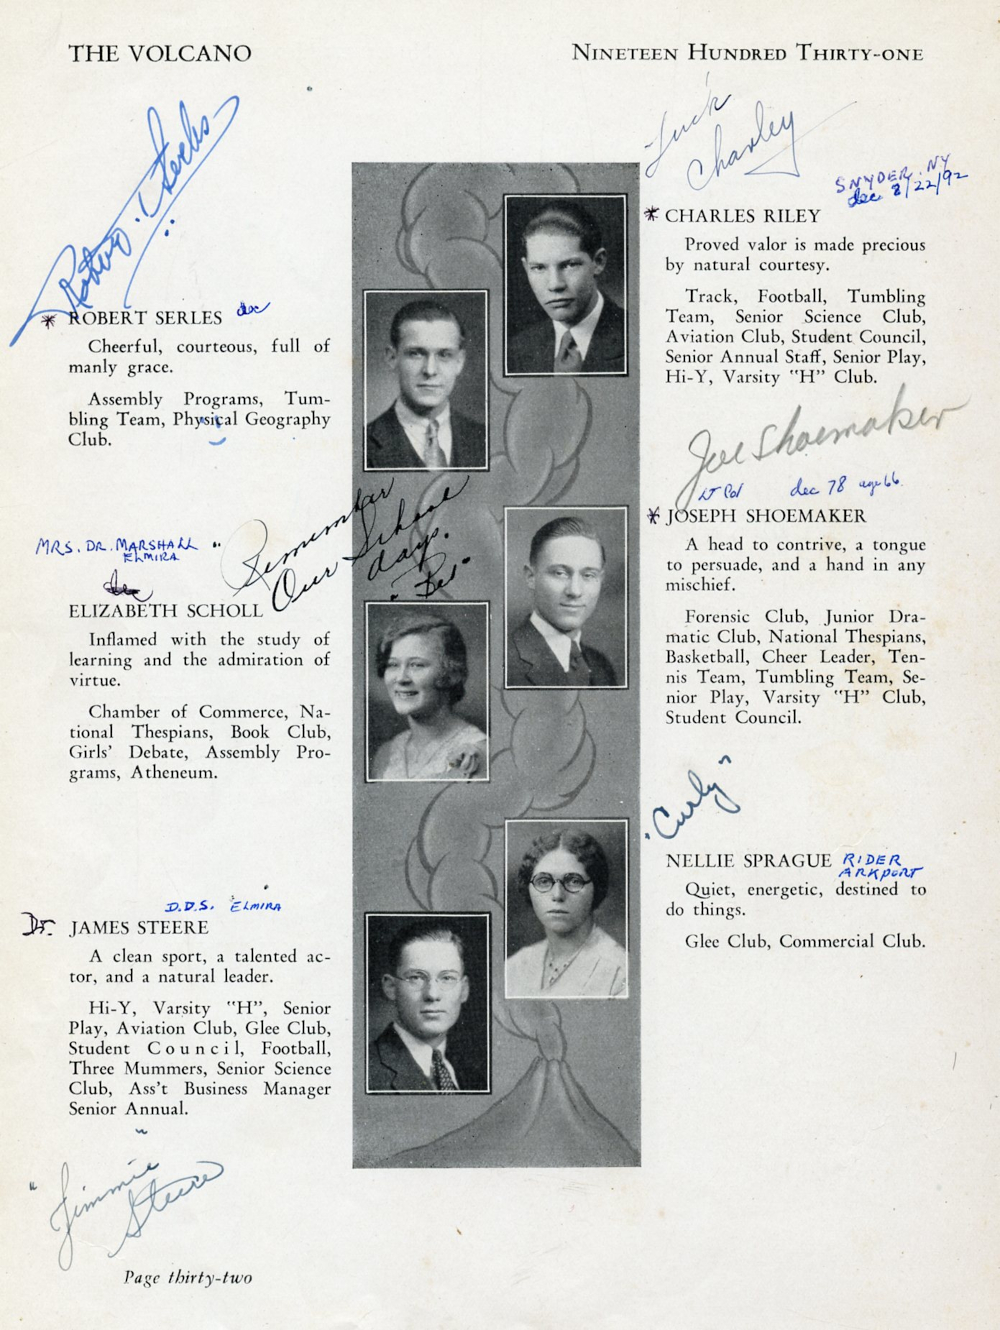 THE VOLCANO
NINETEEN HUNDRED THIRTY-ONE
Robert Serles
* ROBERT SERLES dec
Cheerful, courteous, full of
manly grace.
Assembly Programs, Tum-
bling Team, Physical Geography
Club.
MRS. DR. MARSHALL
ELMIRA
dec
"Remember
Our School
days.
"Bet"
ELIZABETH SCHOLL
Inflamed with the study of
learning and the admiration of
virtue.
Chamber of Commerce, Na-
tional Thespians, Book Club,
Girls' Debate, Assembly Pro-
grams, Atheneum.
D.D.S. ELMIRA
Dr. JAMES STEERE
A clean sport, a talented ac-
tor, and a natural leader.
Hi-Y, Varsity "H", Senior
Play, Aviation Club, Glee Club,
Student Council, Football,
Three Mummers, Senior Science
Club, Ass't Business Manager
Senior Annual.
"Jimmie
Steere"
Luck
Charley
SNYDER, NY
dec 8/22/92
* CHARLES RILEY
Proved valor is made precious
by natural courtesy.
Track, Football, Tumbling
Team, Senior Science Club,
Aviation Club, Student Council,
Senior Annual Staff, Senior Play,
Hi-Y, Varsity "H" Club.
Joe Shoemaker
LT Col dec 78 age 66.
* JOSEPH SHOEMAKER
A head to contrive, a tongue
to persuade, and a hand in any
mischief.
Forensic Club, Junior Dra-
matic Club, National Thespians,
Basketball, Cheer Leader, Ten-
nis Team, Tumbling Team, Se-
nior Play, Varsity "H" Club,
Student Council.
"Curly"
NELLIE SPRAGUE RIDER
ARKPORT
Quiet, energetic, destined to
do things.
Glee Club, Commercial Club.
Page thirty-two